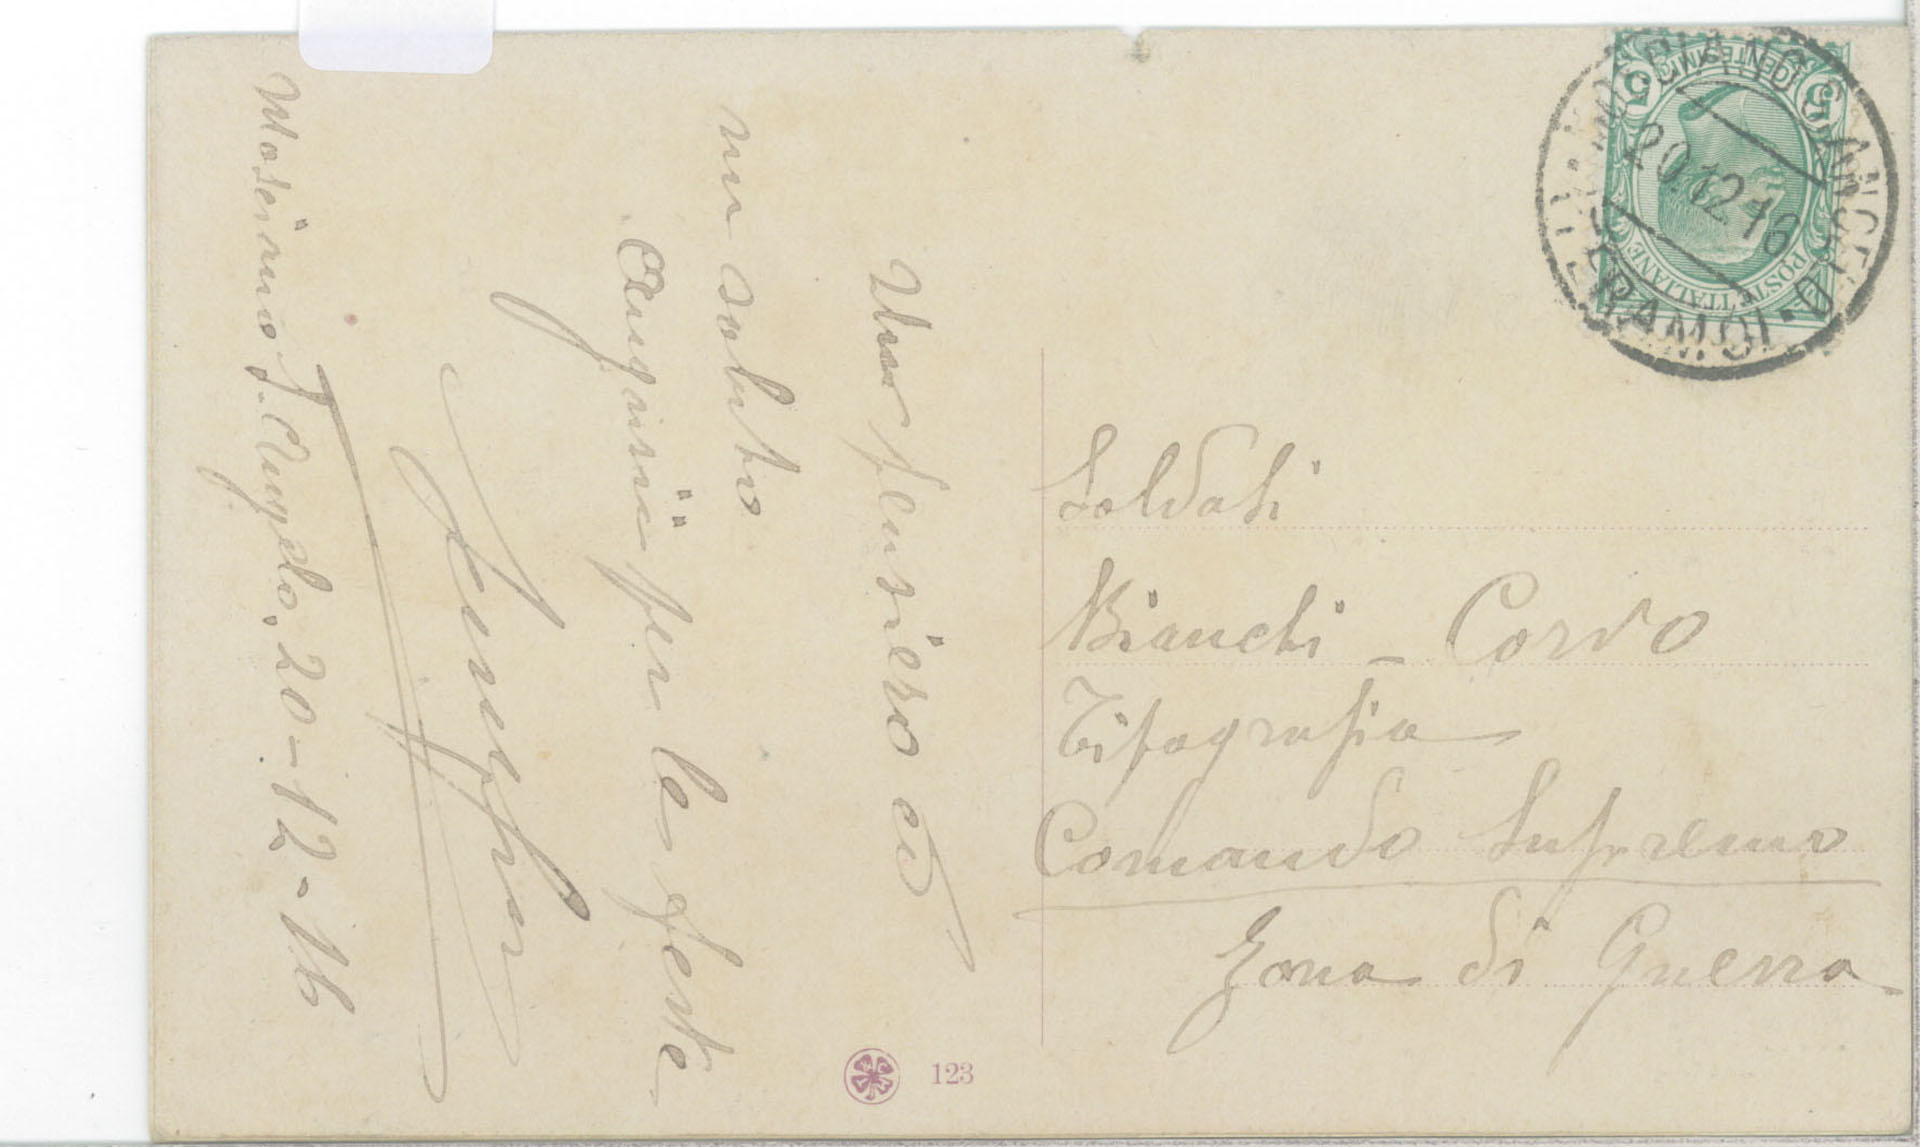 Un pensiero ed
un saluto
Auguri per le feste
Mosciano S. Angelo. 20-12-16
Soldati
Bianchi - Cordo
Tipografia
Comando Supremo
Zona di Guerra
CENTESIMI
5 5
POSTE ITALIANE
MOSCIANO S. ANGELO
20.12.16
(TERAMO)
123